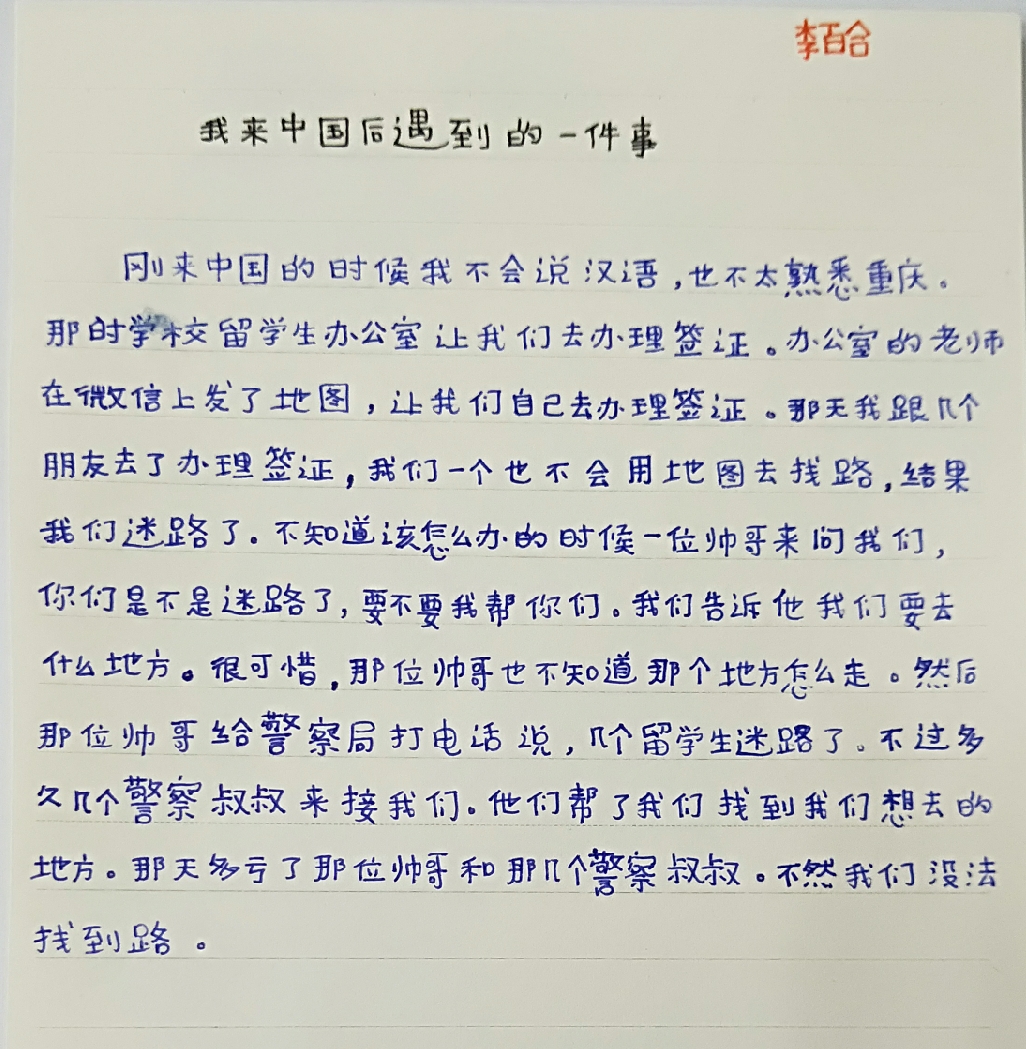 李百合
我来中国后遇到的一件事
刚来中国的时候我不会说汉语,也不太熟悉重庆。
那时学校留学生办公室让我们去办理签证。办公室的老师
在微信上发了地图,让我们自己去办理签证。那天我跟几个
朋友去了办理签证,我们一个也不会用地图去找路,结果
我们迷路了。不知道该怎么办的时候一位帅哥来问我们,
你们是不是迷路了,要不要我帮你们。我们告诉他我们要去
什么地方。很可惜,那位帅哥也不知道那个地方怎么走。然后
那位帅哥给警察局打电话说,几个留学生迷路了。不过多
久几个警察叔叔来接我们。他们帮了我们找到我们想去的
地方。那天多亏了那位帅哥和那几个警察叔叔。不然我们没法
找到路。